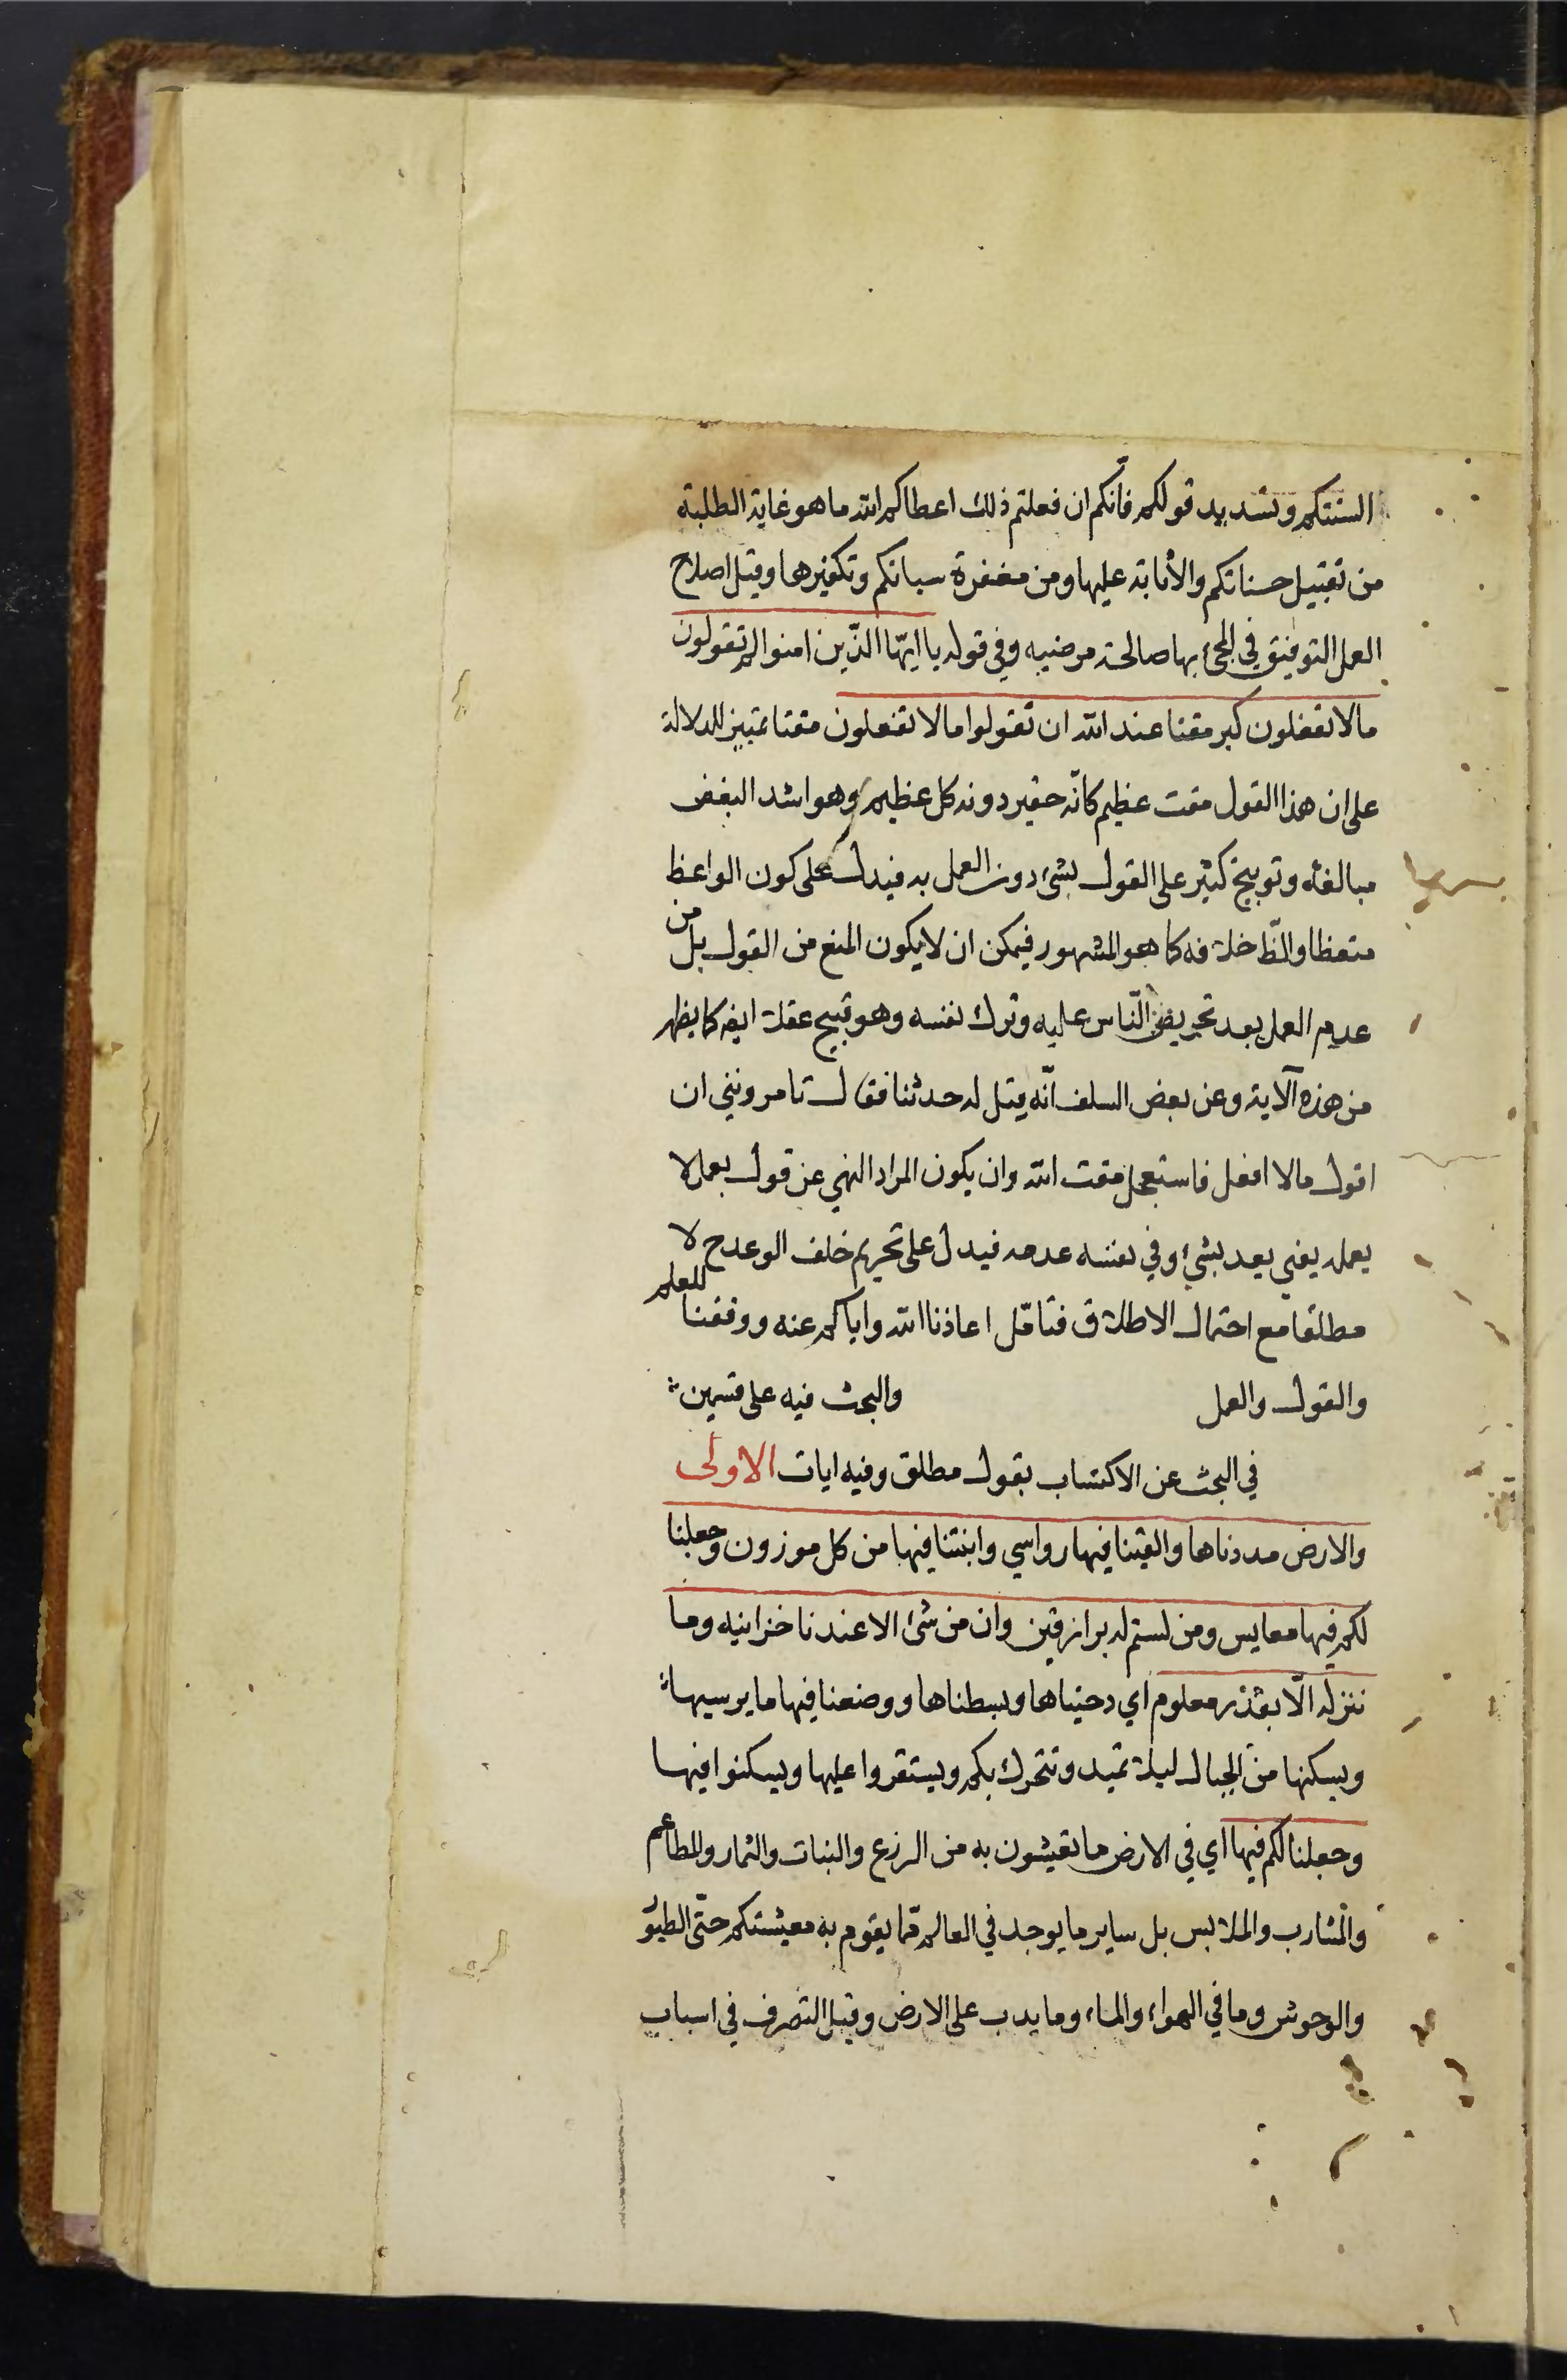 السنتكم وتسديد قولكم فانكم ان فعلتم ذلك اعطاكم الله ما هو غاية الطلبة
من تقبيل حسناتكم والأثابة عليها ومن مغفرة سياتكم وتكفيرها وقيل اصلاح
العمل التوفيق في المجئ بها صالحة مرضيه وفي قوله يا ايهّا الذّين امنوا لم تقولون
مالا تفعلون كبر مقتا عند الله ان تقولوا مالا تفعلون مقتا تمييز للدلالة
على ان هذا القول مقت عظيم كانّه حقير دونه كل عظيم وهو اشد البغض
مبالغة وتوبيخ كثير على القول بشئ دون العمل به فيدل على كون الواعظ
متعظا والّا ظلا فه كما هو المشهور فيمكن ان لا يكون المنع من القول بل من
عدم العمل بعد تحريض النّاس عليه وترك نفسه وهو قبيح عقلا ايضا كما يظهر
من هذه الآية وعن بعض السلف انّه قيل له حدثنا فقال تامرونني ان
اقول مالا افعل فاستعجل مقت الله وان يكون المراد النهي عن قول بعمل لا
يعمله يعني يعد بشئ وفي نفسه عدمه فيدل على تحريم خلف الوعد ح لا
مطلقا مع احتمال الاطلاق فتامّل اعاذنا الله واياكم عنه ووفقنا للعلم
والقول والعمل والبحث فيه على قسمين
في البحث عن الاكتساب بقول مطلق وفيه ايات الاولى
والارض مددناها والقينا فيها رواسي وانبتنا فيها من كل موزون وجعلنا
لكم فيها معايش ومن لستم له برازقين وان من شئ الا عندنا خزاينه وما
ننزله الّا بقدر معلوم اي دحيناها وبسطناها ووضعنا فيها ما يرسيها
ويسكنها من الجبال ليلا تميد وتتحرك بكم ويستقروا عليها ويسكنوا فيها
وجعلنا لكم فيها اي في الارض ما تعيشون به من الزرع والنبات والثمار والمطاعم
والمشارب والملابس بل ساير ما يوجد في العالم ممّا يقوم به معيشتكم حتّى الطيور
والوحوش وما في الهواء والماء وما يدب على الارض وقيل التصرف في اسباب